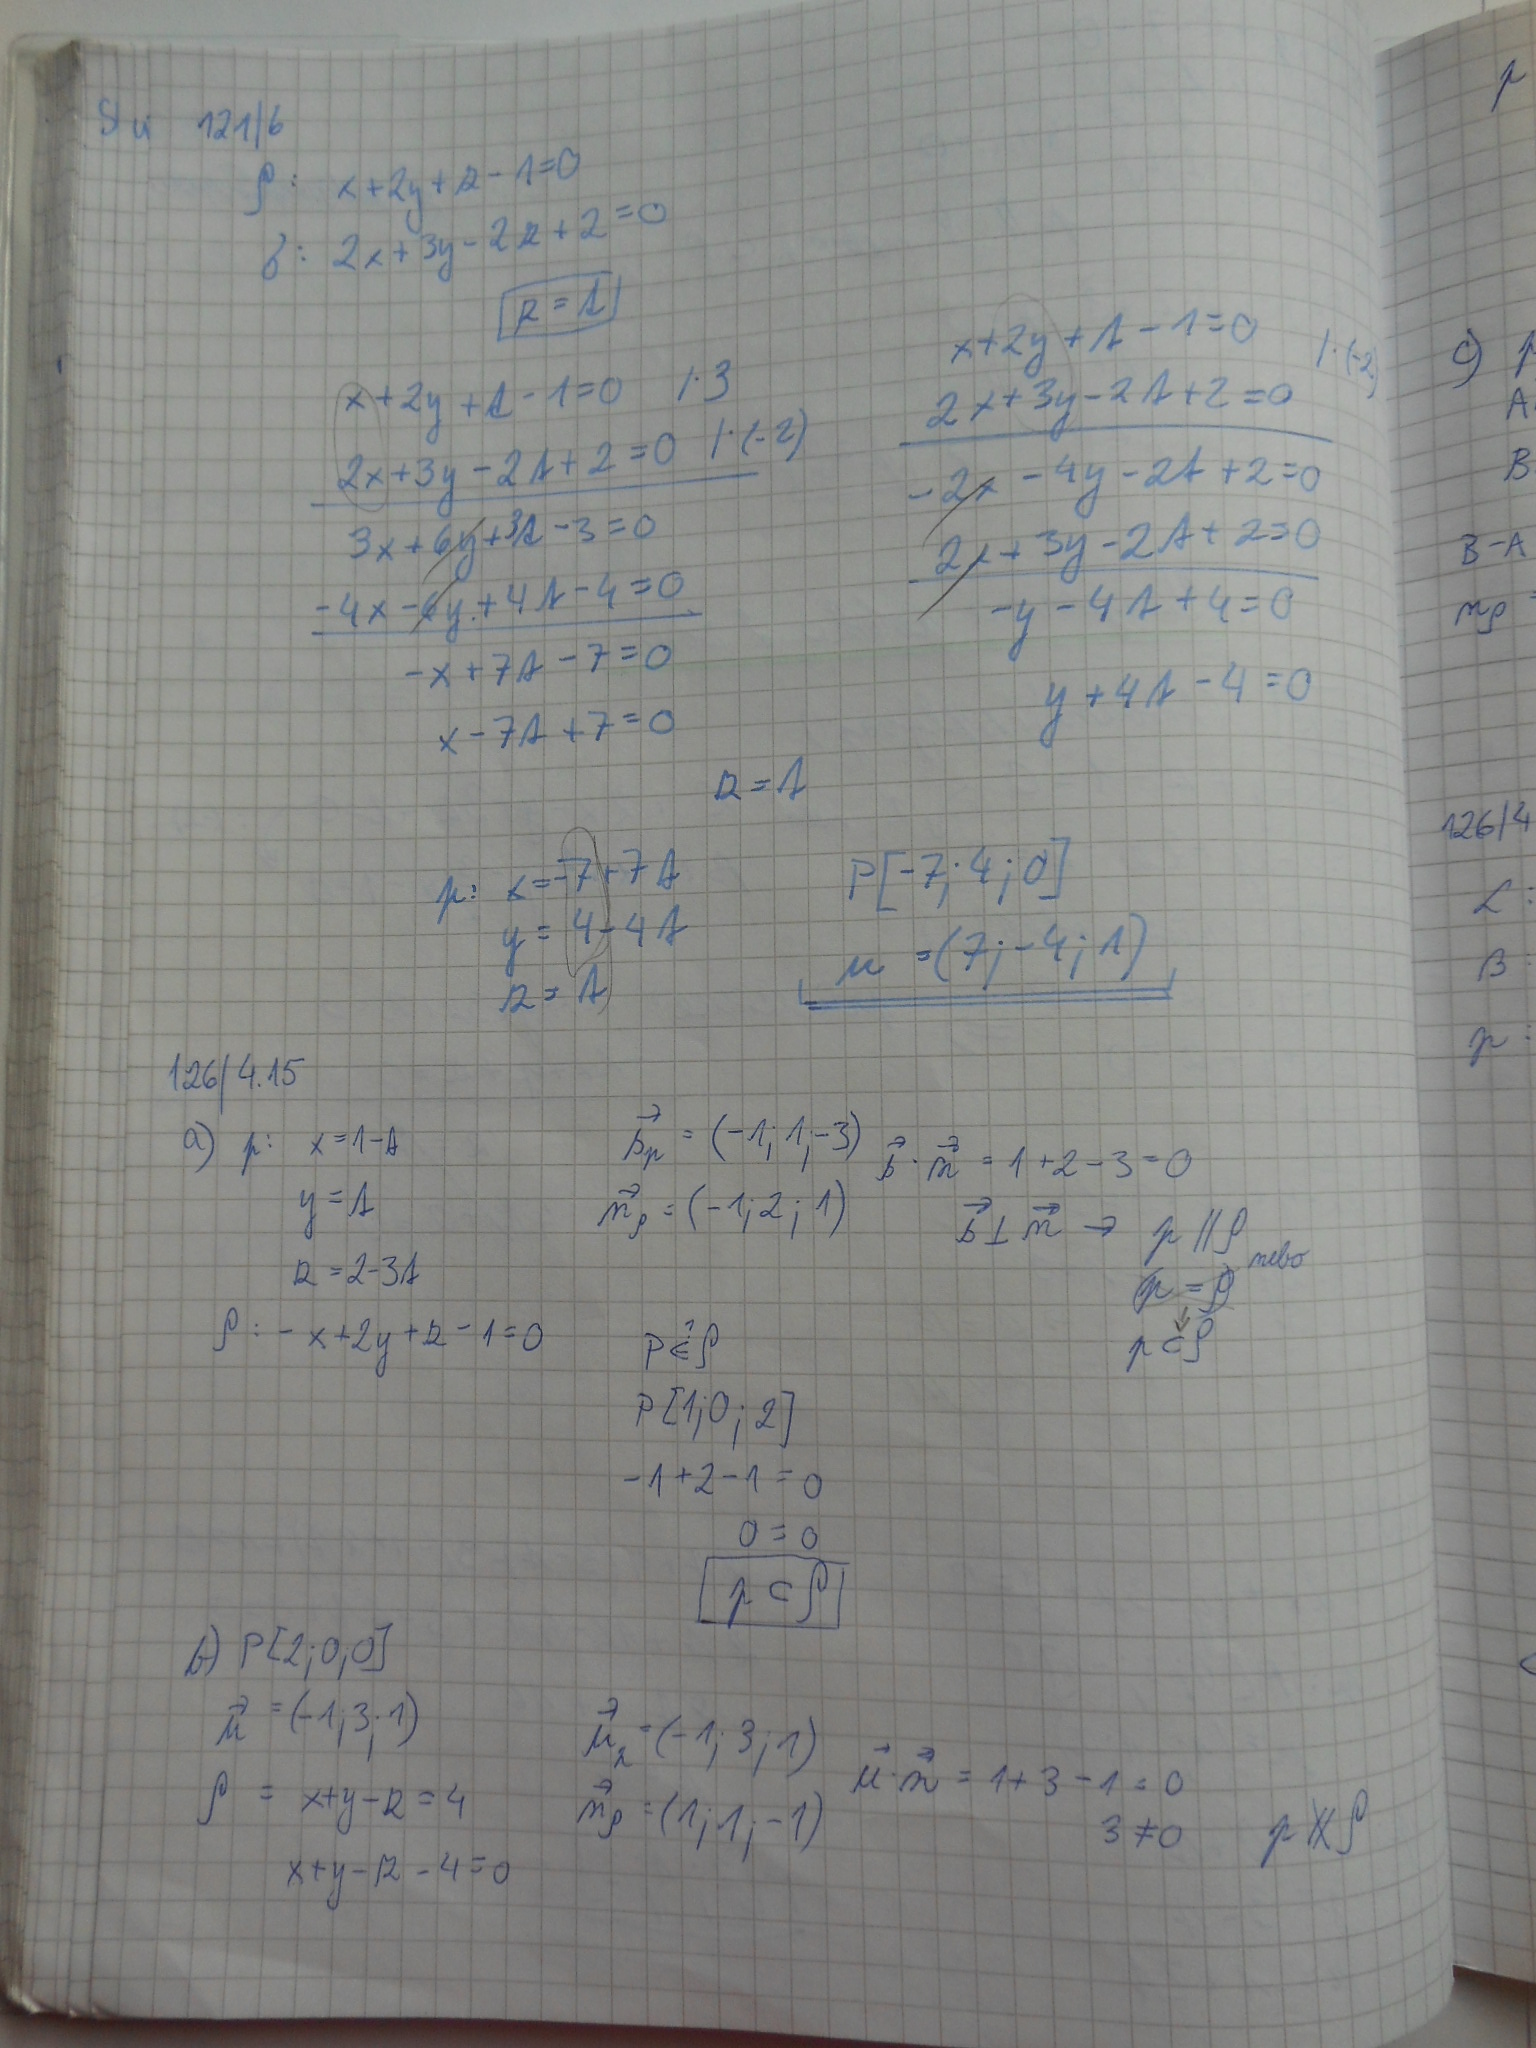 121/6
ρ: x+2y+z-1=0
σ: 2x+3y-2z+2=0
z=t
x+2y+t-1=0 /·3
2x+3y-2t+2=0 /·(-2)
3x+6y+3t-3=0
-4x-6y+4t-4=0
-x+7t-7=0
x-7t+7=0
x+2y+t-1=0 /·(-2)
2x+3y-2t+2=0
-2x-4y-2t+2=0
2x+3y-2t+2=0
-y-4t+4=0
y+4t-4=0
z=t
p: x=-7+7t
y=4-4t
z=t
P[-7;4;0]
u=(7;-4;1)
126/4.15
a) p: x=1-t
y=t
z=2-3t
ρ: -x+2y+z-1=0
s⃗p=(-1;1;-3)
n⃗ρ=(-1;2;1)
s⃗·n⃗=1+2-3=0
s⃗⊥n⃗ → p∥ρ
nebo
p=ρ
p⊂ρ
P∈ρ ?
P[1;0;2]
-1+2-1=0
0=0
p⊂ρ
b) P[2;0;0]
u⃗=(-1;3;1)
ρ = x+y-z=4
x+y-z-4=0
u⃗₂=(-1;3;1)
n⃗ρ=(1;1;-1)
u⃗·n⃗=1+3-1=0
3≠0
p∦ρ
p
c) p
A
B
B-A
nρ =
126/4
L:
B
p: